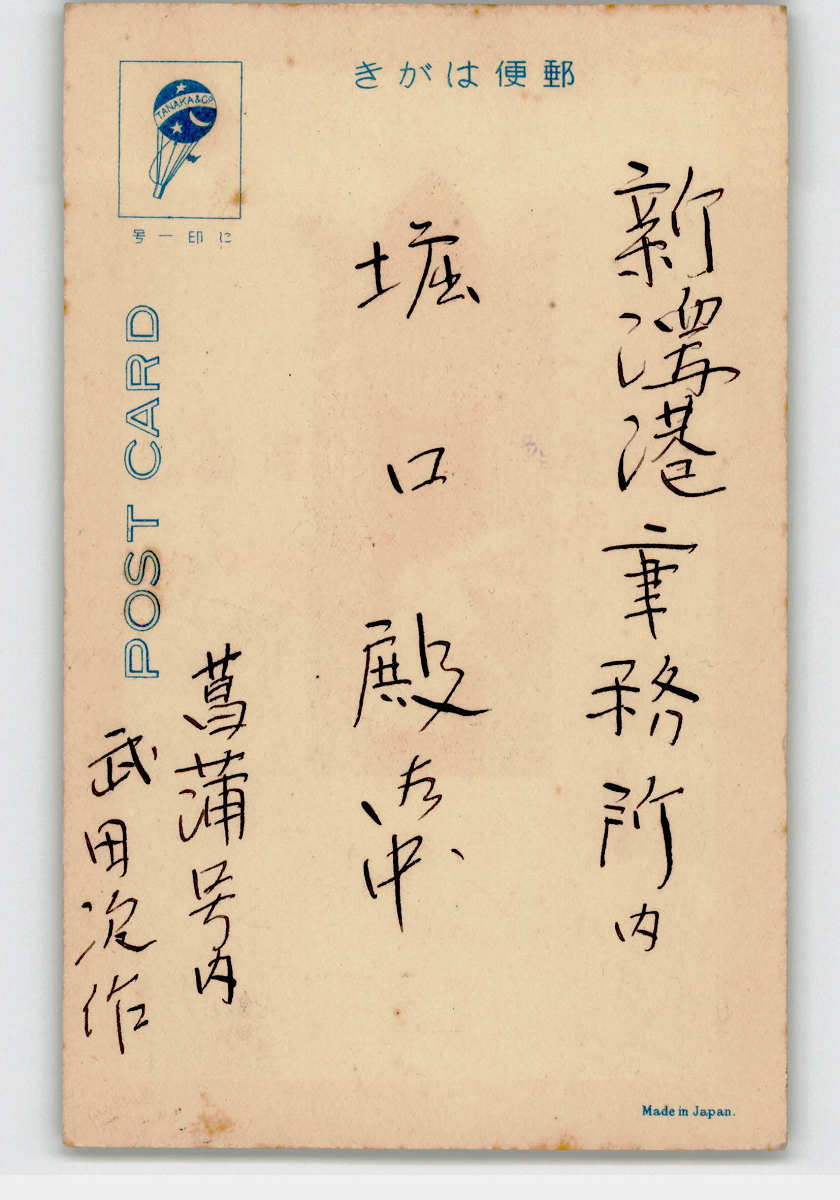 郵便はがき
TANAKA & CO
に印一号
POST CARD
新潟港事務所内
堀口殿
菖蒲号内
武田次作
Made in Japan.